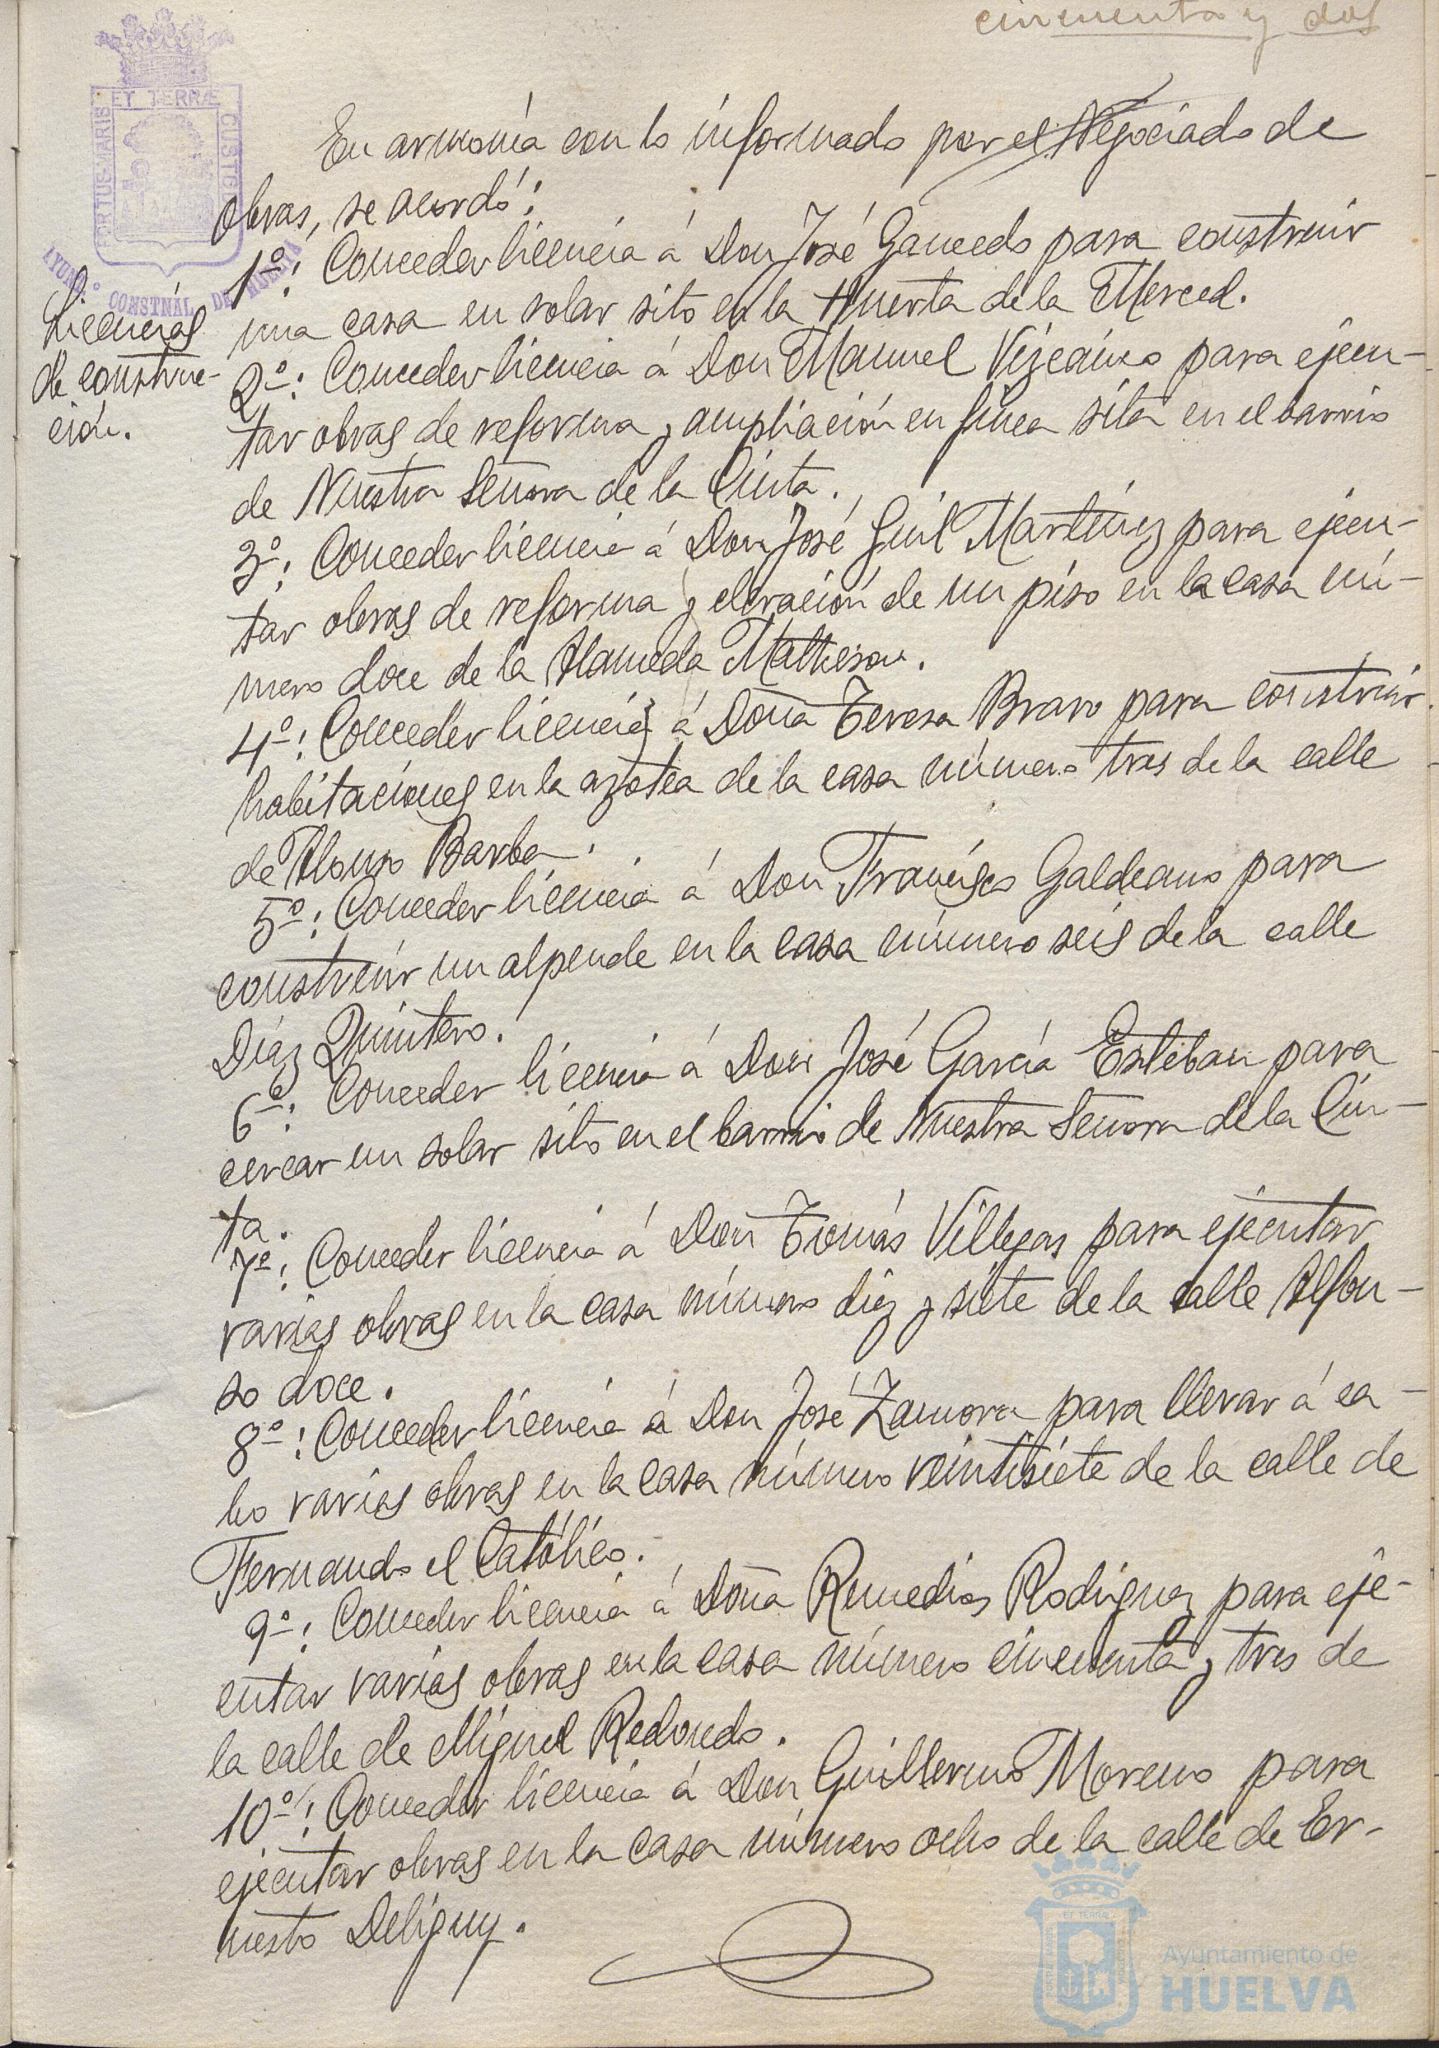 cincuenta y dos
ET TERRÆ
PORTUS MARIS
CUSTODIA
AYUNT.º CONSTNAL DE HUELVA
Licencias
de construc-
ción.
En armonía con lo informado por el Negociado de
obras, se acordó:
1º: Conceder licencia á Don José Gancedo para construir
una casa en solar sito en la Huerta de la Merced.
2º: Conceder licencia á Don Manuel Vizcaino para ejecu-
tar obras de reforma y ampliación en finca sita en el barrio
de Nuestra Señora de la Cinta.
3º: Conceder licencia á Don José Gil Martínez para ejecu-
tar obras de reforma y elevación de un piso en la casa nú-
mero doce de la Alameda Matheson.
4º: Conceder licencia á Doña Teresa Bravo para construir
habitaciones en la azotea de la casa número tres de la calle
de Alonso Barba.
5º: Conceder licencia á Don Francisco Galdeano para
construir un alpende en la casa número seis de la calle
Díaz Quintero.
6º: Conceder licencia á Don José García Esteban para
cercar un solar sito en el barrio de Nuestra Señora de la Cin-
ta.
7º: Conceder licencia á Don Tomás Villegas para ejecutar
varias obras en la casa número diez y siete de la calle Alfon-
so doce.
8º: Conceder licencia á Don José Zamora para llevar á ca-
bo varias obras en la casa número veintisiete de la calle de
Fernando el Católico.
9º: Conceder licencia á Doña Remedios Rodriguez para eje-
cutar varias obras en la casa número cincuenta y tres de
la calle de Miguel Redondo.
10º: Conceder licencia á Don Guillermo Moreno para
ejecutar obras en la casa número ocho de la calle de Er-
nesto Deligny.
Ayuntamiento de
HUELVA